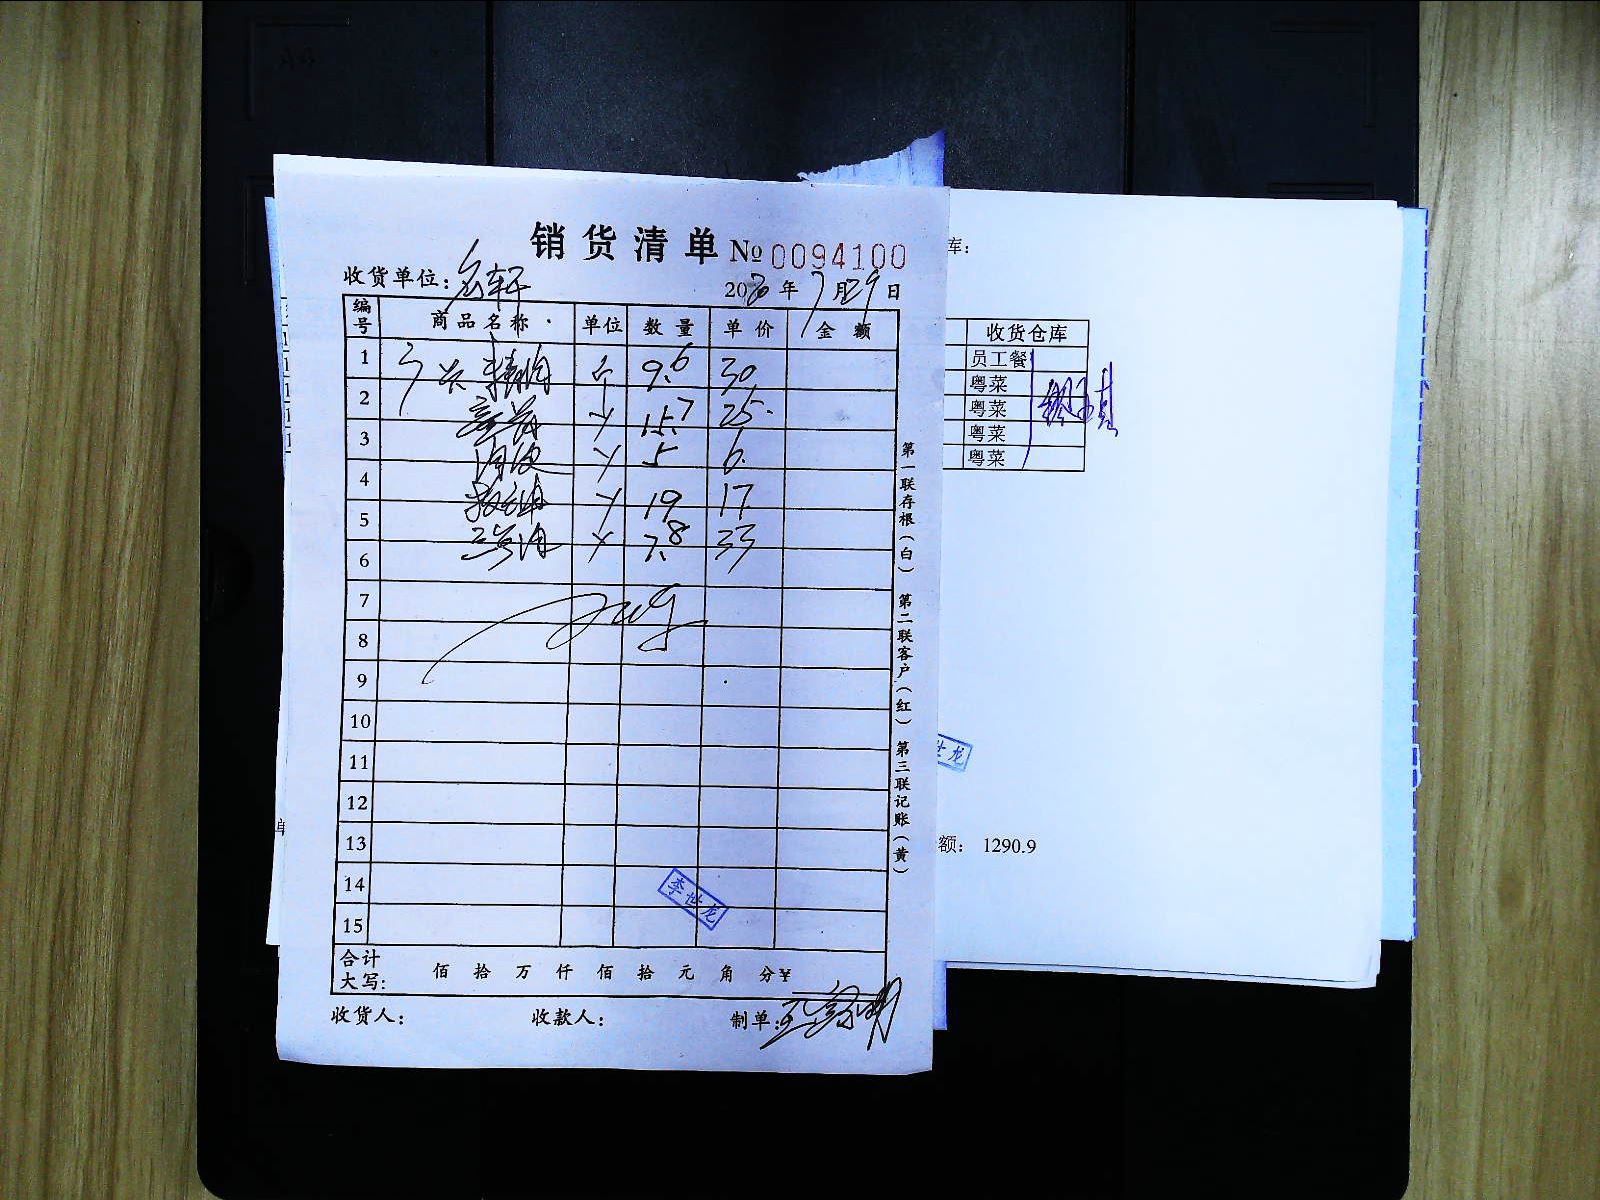 销货清单 № 0094100
收货单位:
2020年7月29日
编号 商品名称 单位 数量 单价 金额
1 精肉 斤 9.6 30
2 15.7 25.
3 肉皮 5 6.
4 19 17.
5 三号肉 7.8 33
6
7
8
9
10
11
12
13
14
15
李世龙
合计
大写: 佰 拾 万 仟 佰 拾 元 角 分 ¥
收货人: 收款人: 制单:
第一联存根(白) 第二联客户(红) 第三联记账(黄)
库:
收货仓库
员工餐
粤菜
粤菜
粤菜
粤菜
世龙
额: 1290.9